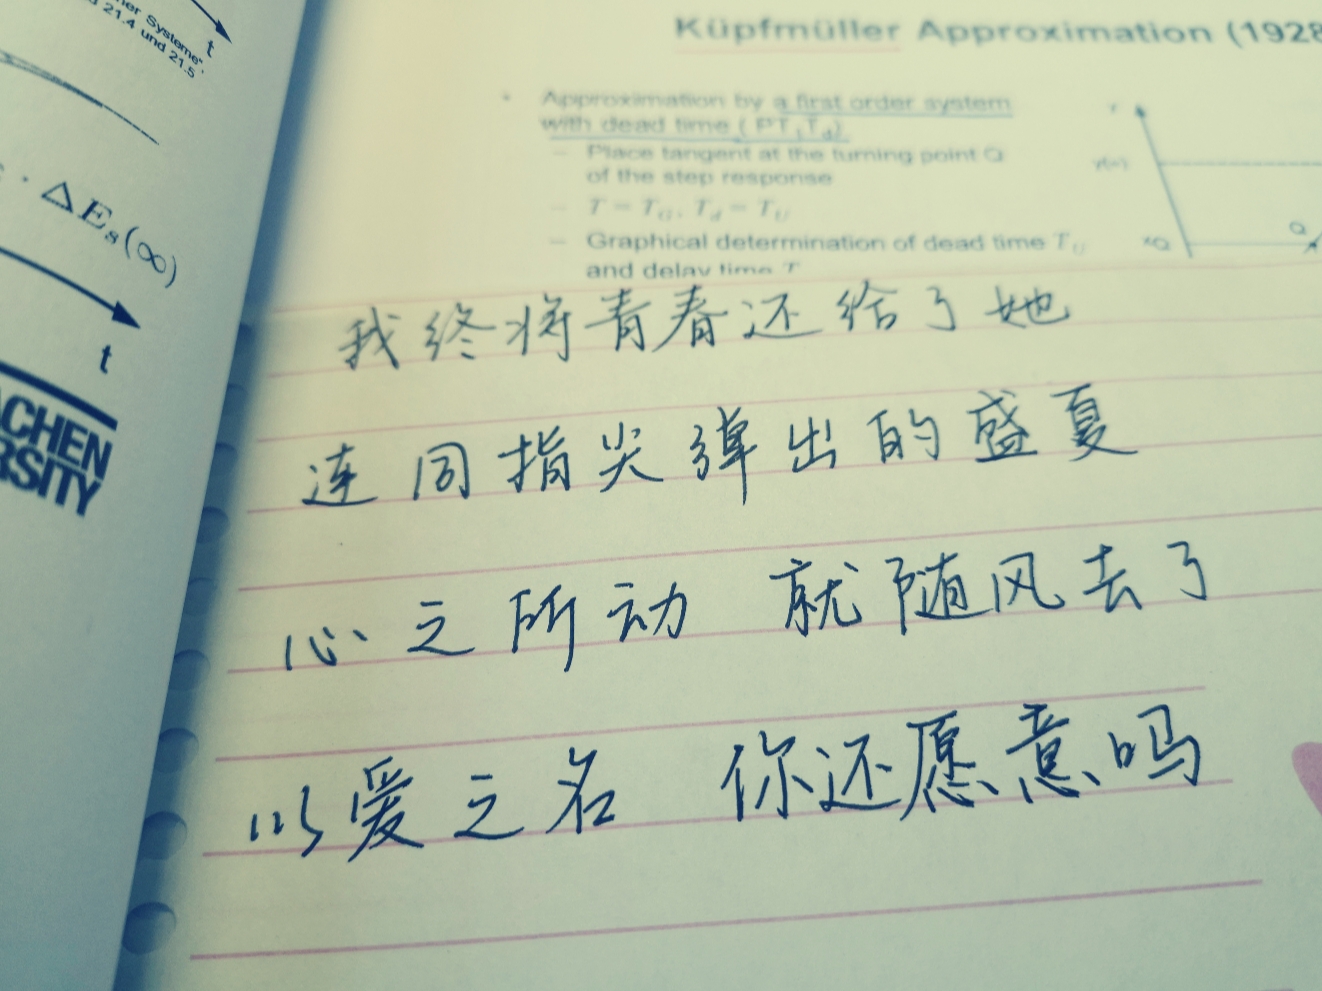 t
21.4 und 21.5
· ΔE_s(∞)
t
Küpfmüller Approximation (1928
• Approximation by a first order system
with dead time ( PT₁T_d).
– Place tangent at the turning point Q
of the step response
– T = T_G, T_d = T_U
– Graphical determination of dead time T_U
and delay time T
Q
我终将青春还给了她
连同指尖弹出的盛夏
心之所动 就随风去了
以爱之名 你还愿意吗